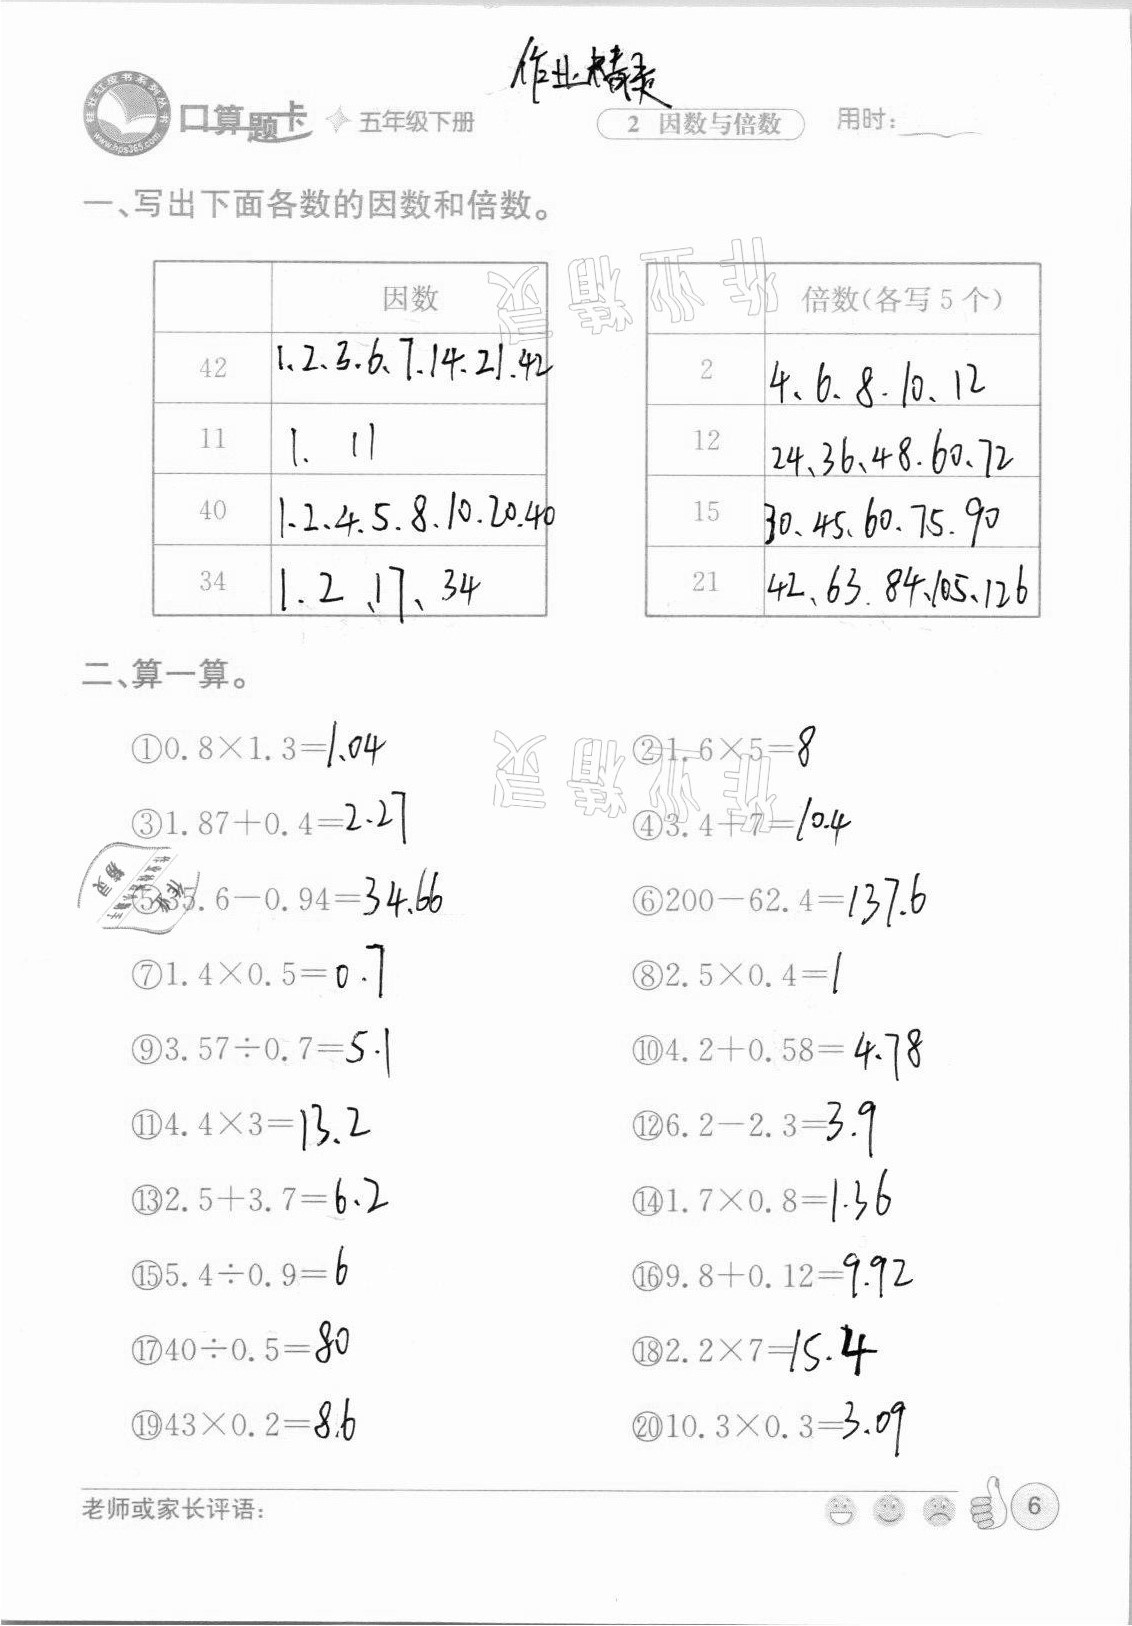 作业精灵
桂壮红皮书系列丛书
www.hps365.com
口算题卡 五年级下册 2 因数与倍数 用时:
一、写出下面各数的因数和倍数。
因数 倍数(各写5个)
42 1、2、3、6、7、14、21、42 2 4、6、8、10、12
11 1、11 12 24、36、48、60、72
40 1、2、4、5、8、10、20、40 15 30、45、60、75、90
34 1、2、17、34 21 42、63、84、105、126
二、算一算。
①0.8×1.3=1.04 ②1.6×5=8
③1.87+0.4=2.27 ④3.4+7=10.4
⑤35.6-0.94=34.66 ⑥200-62.4=137.6
⑦1.4×0.5=0.7 ⑧2.5×0.4=1
⑨3.57÷0.7=5.1 ⑩4.2+0.58=4.78
⑪4.4×3=13.2 ⑫6.2-2.3=3.9
⑬2.5+3.7=6.2 ⑭1.7×0.8=1.36
⑮5.4÷0.9=6 ⑯9.8+0.12=9.92
⑰40÷0.5=80 ⑱2.2×7=15.4
⑲43×0.2=8.6 ⑳10.3×0.3=3.09
老师或家长评语: 6
作业精灵
作业精灵